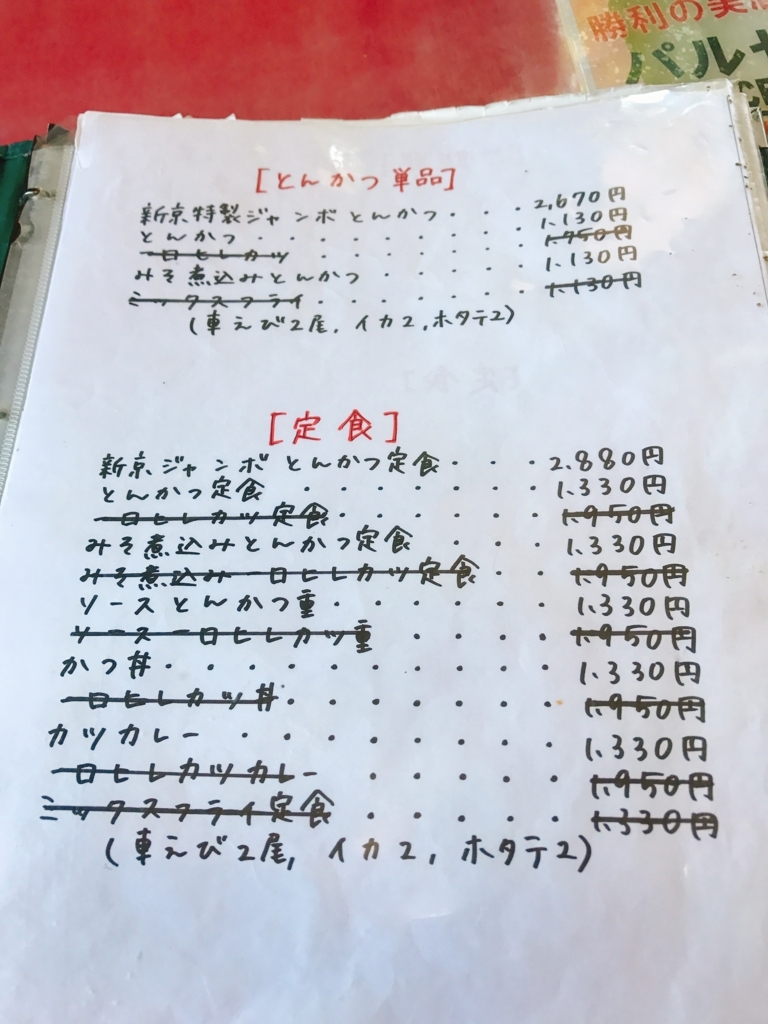 勝利の美酒
パルセ
[とんかつ単品]
新京特製ジャンボとんかつ・・・2,670円
とんかつ・・・・・・・1,130円
一口ヒレカツ・・・・・・1,750円
みそ煮込みとんかつ・・・・・1,130円
ミックスフライ・・・・・・1,130円
(車えび2尾,イカ2,ホタテ2)
[定食]
新京ジャンボとんかつ定食・・・2.880円
とんかつ定食・・・・・・・1.330円
一口ヒレカツ定食・・・・・・1.950円
みそ煮込みとんかつ定食・・・・1.330円
みそ煮込み一口ヒレカツ定食・・1.950円
ソースとんかつ重・・・・・・1.330円
ソース一口ヒレカツ重・・・・・1.950円
かつ丼・・・・・・・・・1.330円
一口ヒレカツ丼・・・・・・・1.950円
カツカレー・・・・・・・・1.330円
一口ヒレカツカレー・・・・・1.950円
ミックスフライ定食・・・・・1.330円
(車えび2尾,イカ2,ホタテ2)